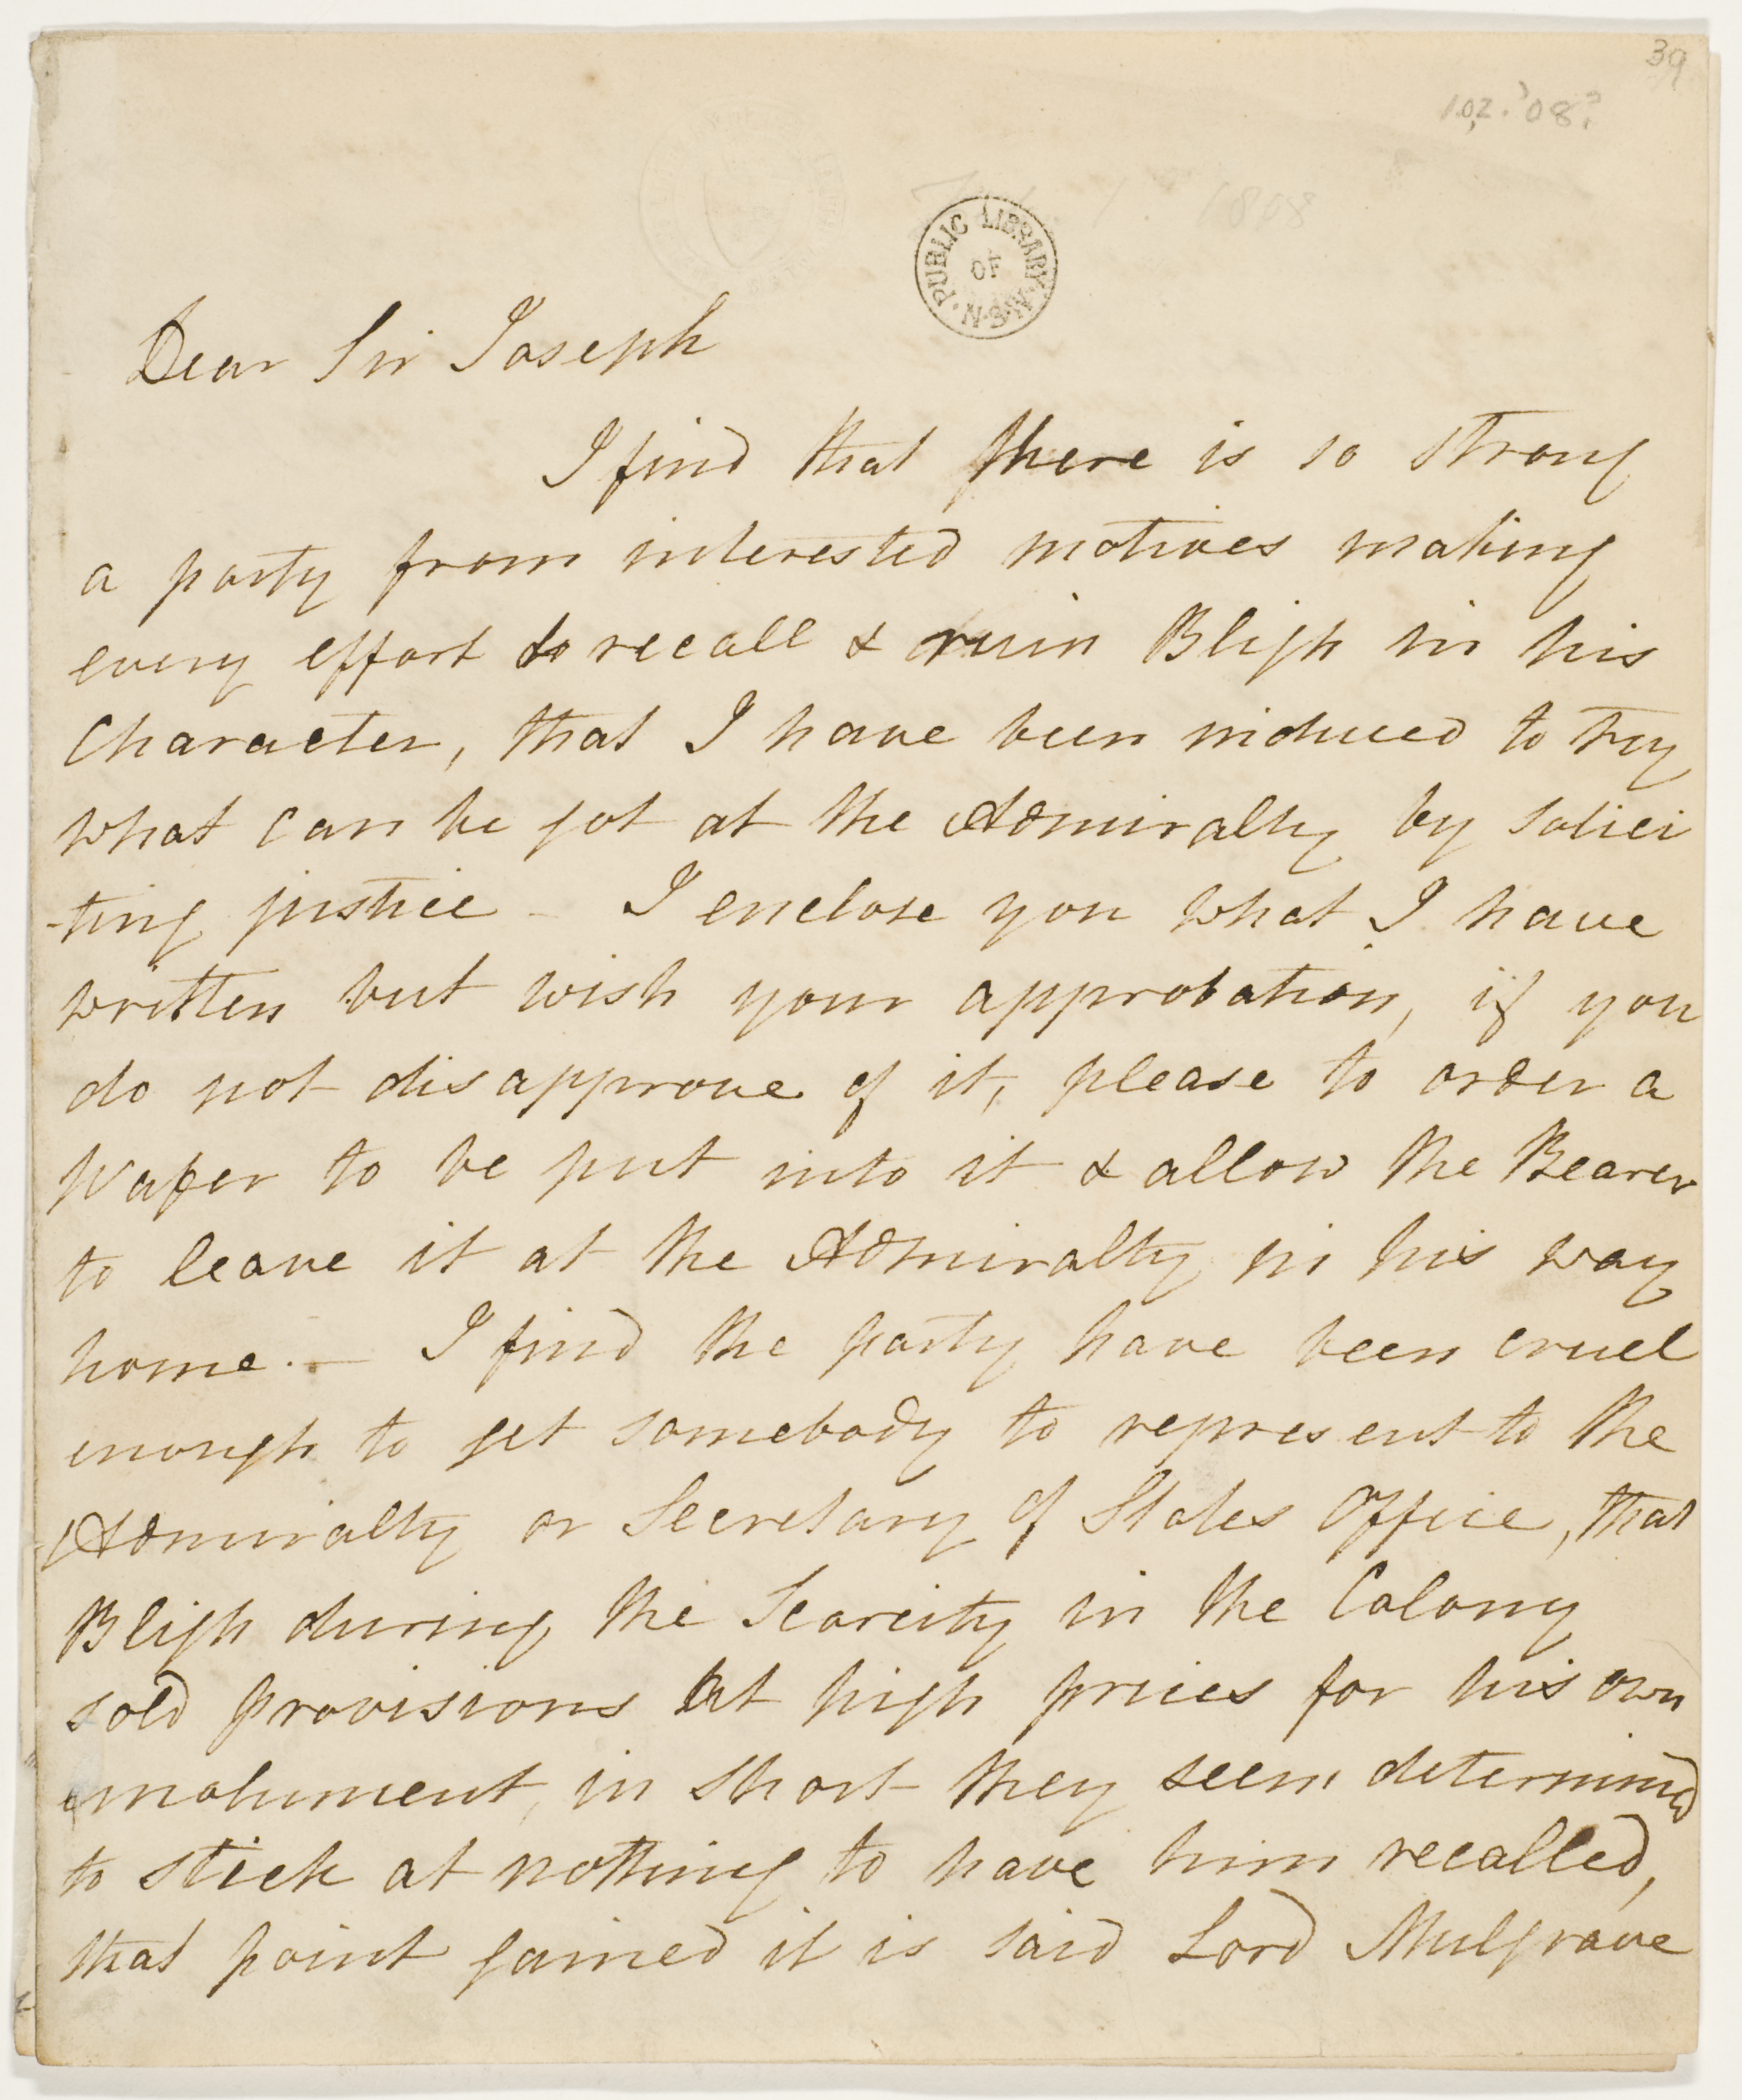 39
1808
PUBLIC LIBRARY OF N.S.W.
Dear Sir Joseph
I find that there is so strong
a party from interested motives making
every effort to recall & ruin Bligh in his
Character, that I have been induced to try
what can be got at the Admiralty by solici
-ting justice - I enclose you what I have
written but wish your approbation, if you
do not disapprove of it, please to order a
Wafer to be put into it & allow the Bearer
to leave it at the Admiralty in his way
home. — I find the party have been cruel
enough to get somebody to represent to the
Admiralty or Secretary of States Office, that
Bligh during the Scarcity in the Colony
sold provisions at high prices for his own
emolument, in short they seem determined
to stick at nothing to have him recalled,
that point gained it is said Lord Mulgrave